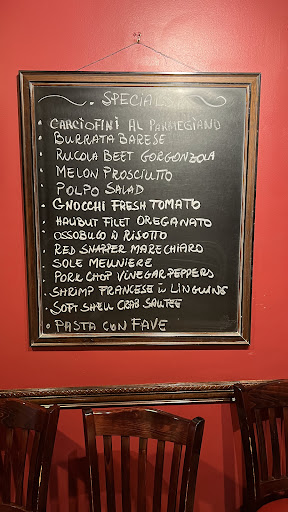 SPECIALS
CARCIOFINI AL PARMEGIANO
BURRATA BARESE
RUCOLA BEET GORGONZOLA
MELON PROSCIUTTO
POLPO SALAD
GNOCCHI FRESH TOMATO
HALIBUT FILET OREGANATO
OSSOBUCO Ũ RISOTTO
RED SNAPPER MARECHIARO
SOLE MEUNIERE
PORK CHOP VINEGAR PEPPERS
SHRIMP FRANCESE Ũ LINGUINE
SOFT SHELL CRAB SAUTEE
PASTA CON FAVE